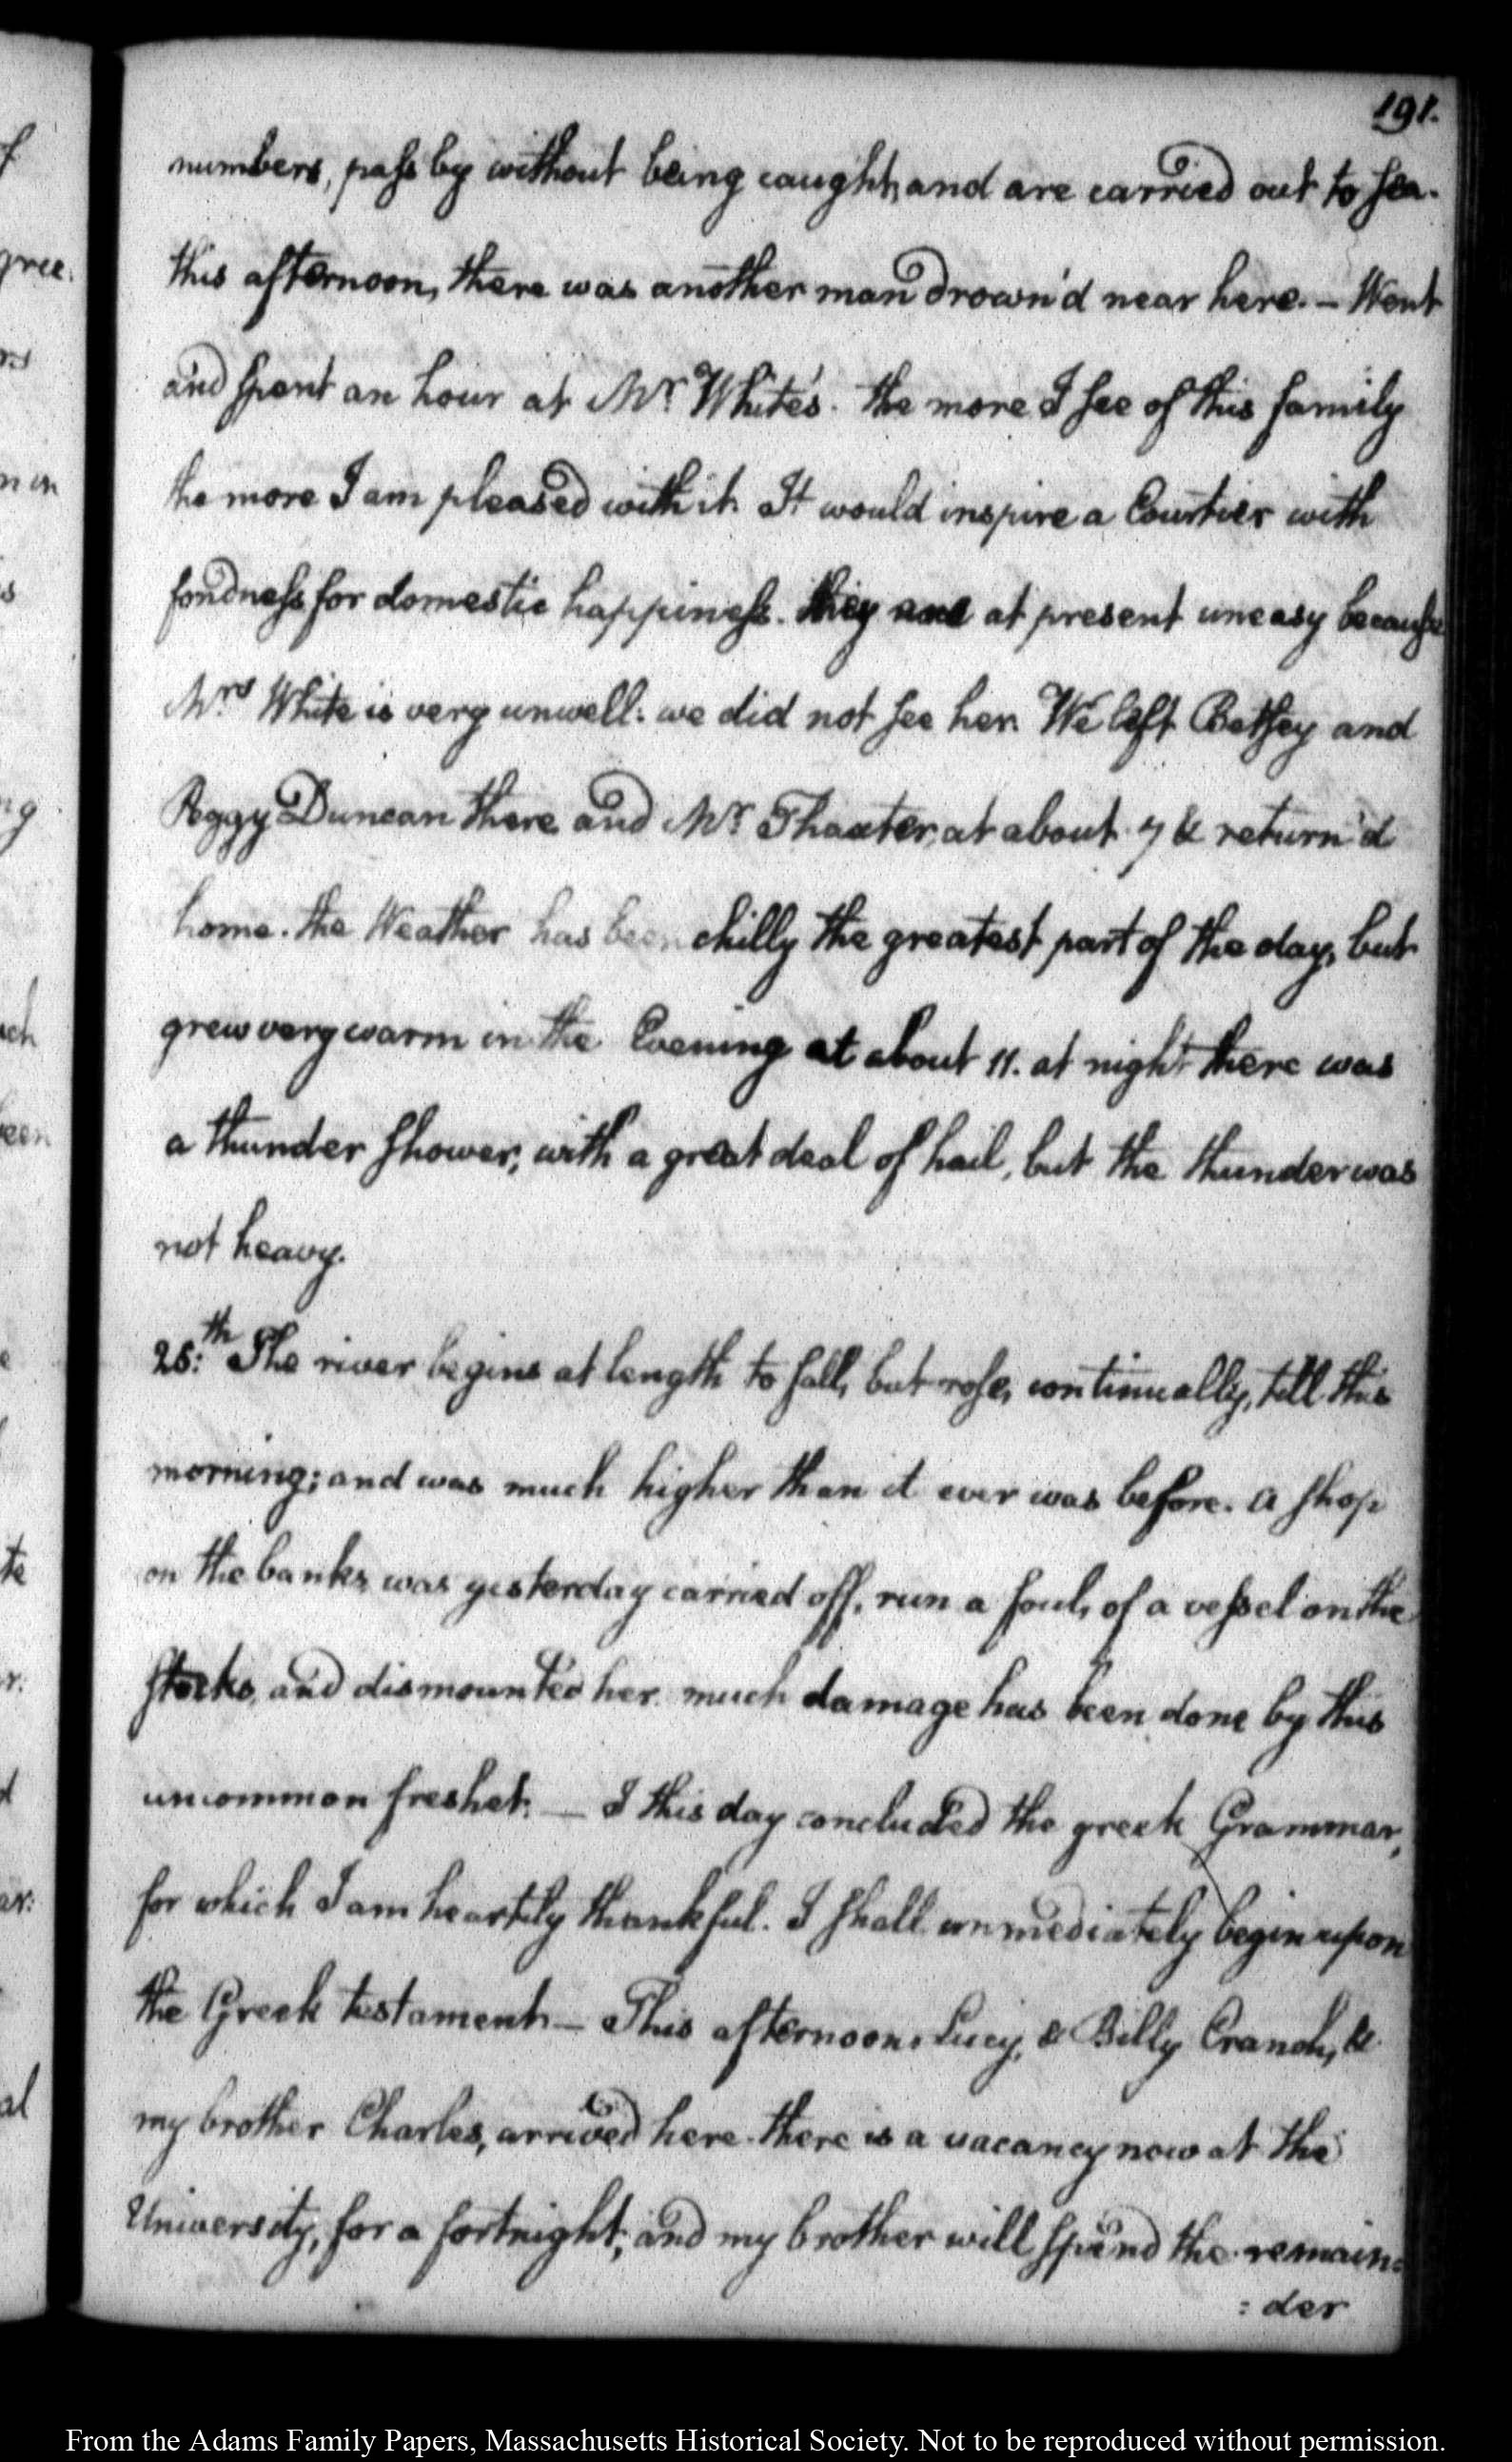 191.
numbers, pass by without being caught, and are carried out to sea.
this afternoon, there was another man drown'd near here. — Went
and spent an hour at Mr. White's. the more I see of this family
the more I am pleased with it. It would inspire a Courtier with
fondness for domestic happiness. they are at present uneasy because
Mrs. White is very unwell: we did not see her. We left Betsey and
Peggy Duncan there and Mr. Thaxter, at about 7 & return'd
home. the Weather has been chilly the greatest part of the day, but
grew very warm in the Evening at about 11. at night there was
a thunder shower, with a great deal of hail, but the thunder was
not heavy.
25th. The river begins at length to fall, but rose, continually, till this
morning; and was much higher than it ever was before. a shop
on the banks, was yesterday carried off, run a foul, of a vessel on the
stocks, and dismounted her. much damage has been done by this
uncommon freshet. — I this day concluded the greek Grammar,
for which I am heartily thankful. I shall immediately begin upon
the Greek testament. — This afternoon, Lucy, & Billy Cranch, &
my brother Charles, arrived here. there is a vacancy now at the
University, for a fortnight, and my brother will spend the remain=
=der
From the Adams Family Papers, Massachusetts Historical Society. Not to be reproduced without permission.